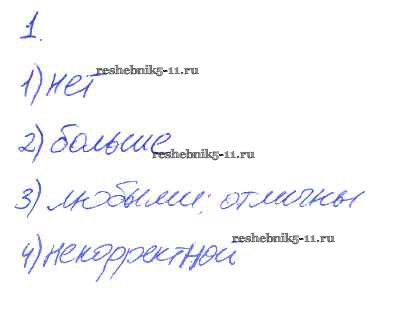 1.
reshebnik5-11.ru
1) нет
2) больше
reshebnik5-11.ru
3) любыми; отличны
reshebnik5-11.ru
4) некорректной